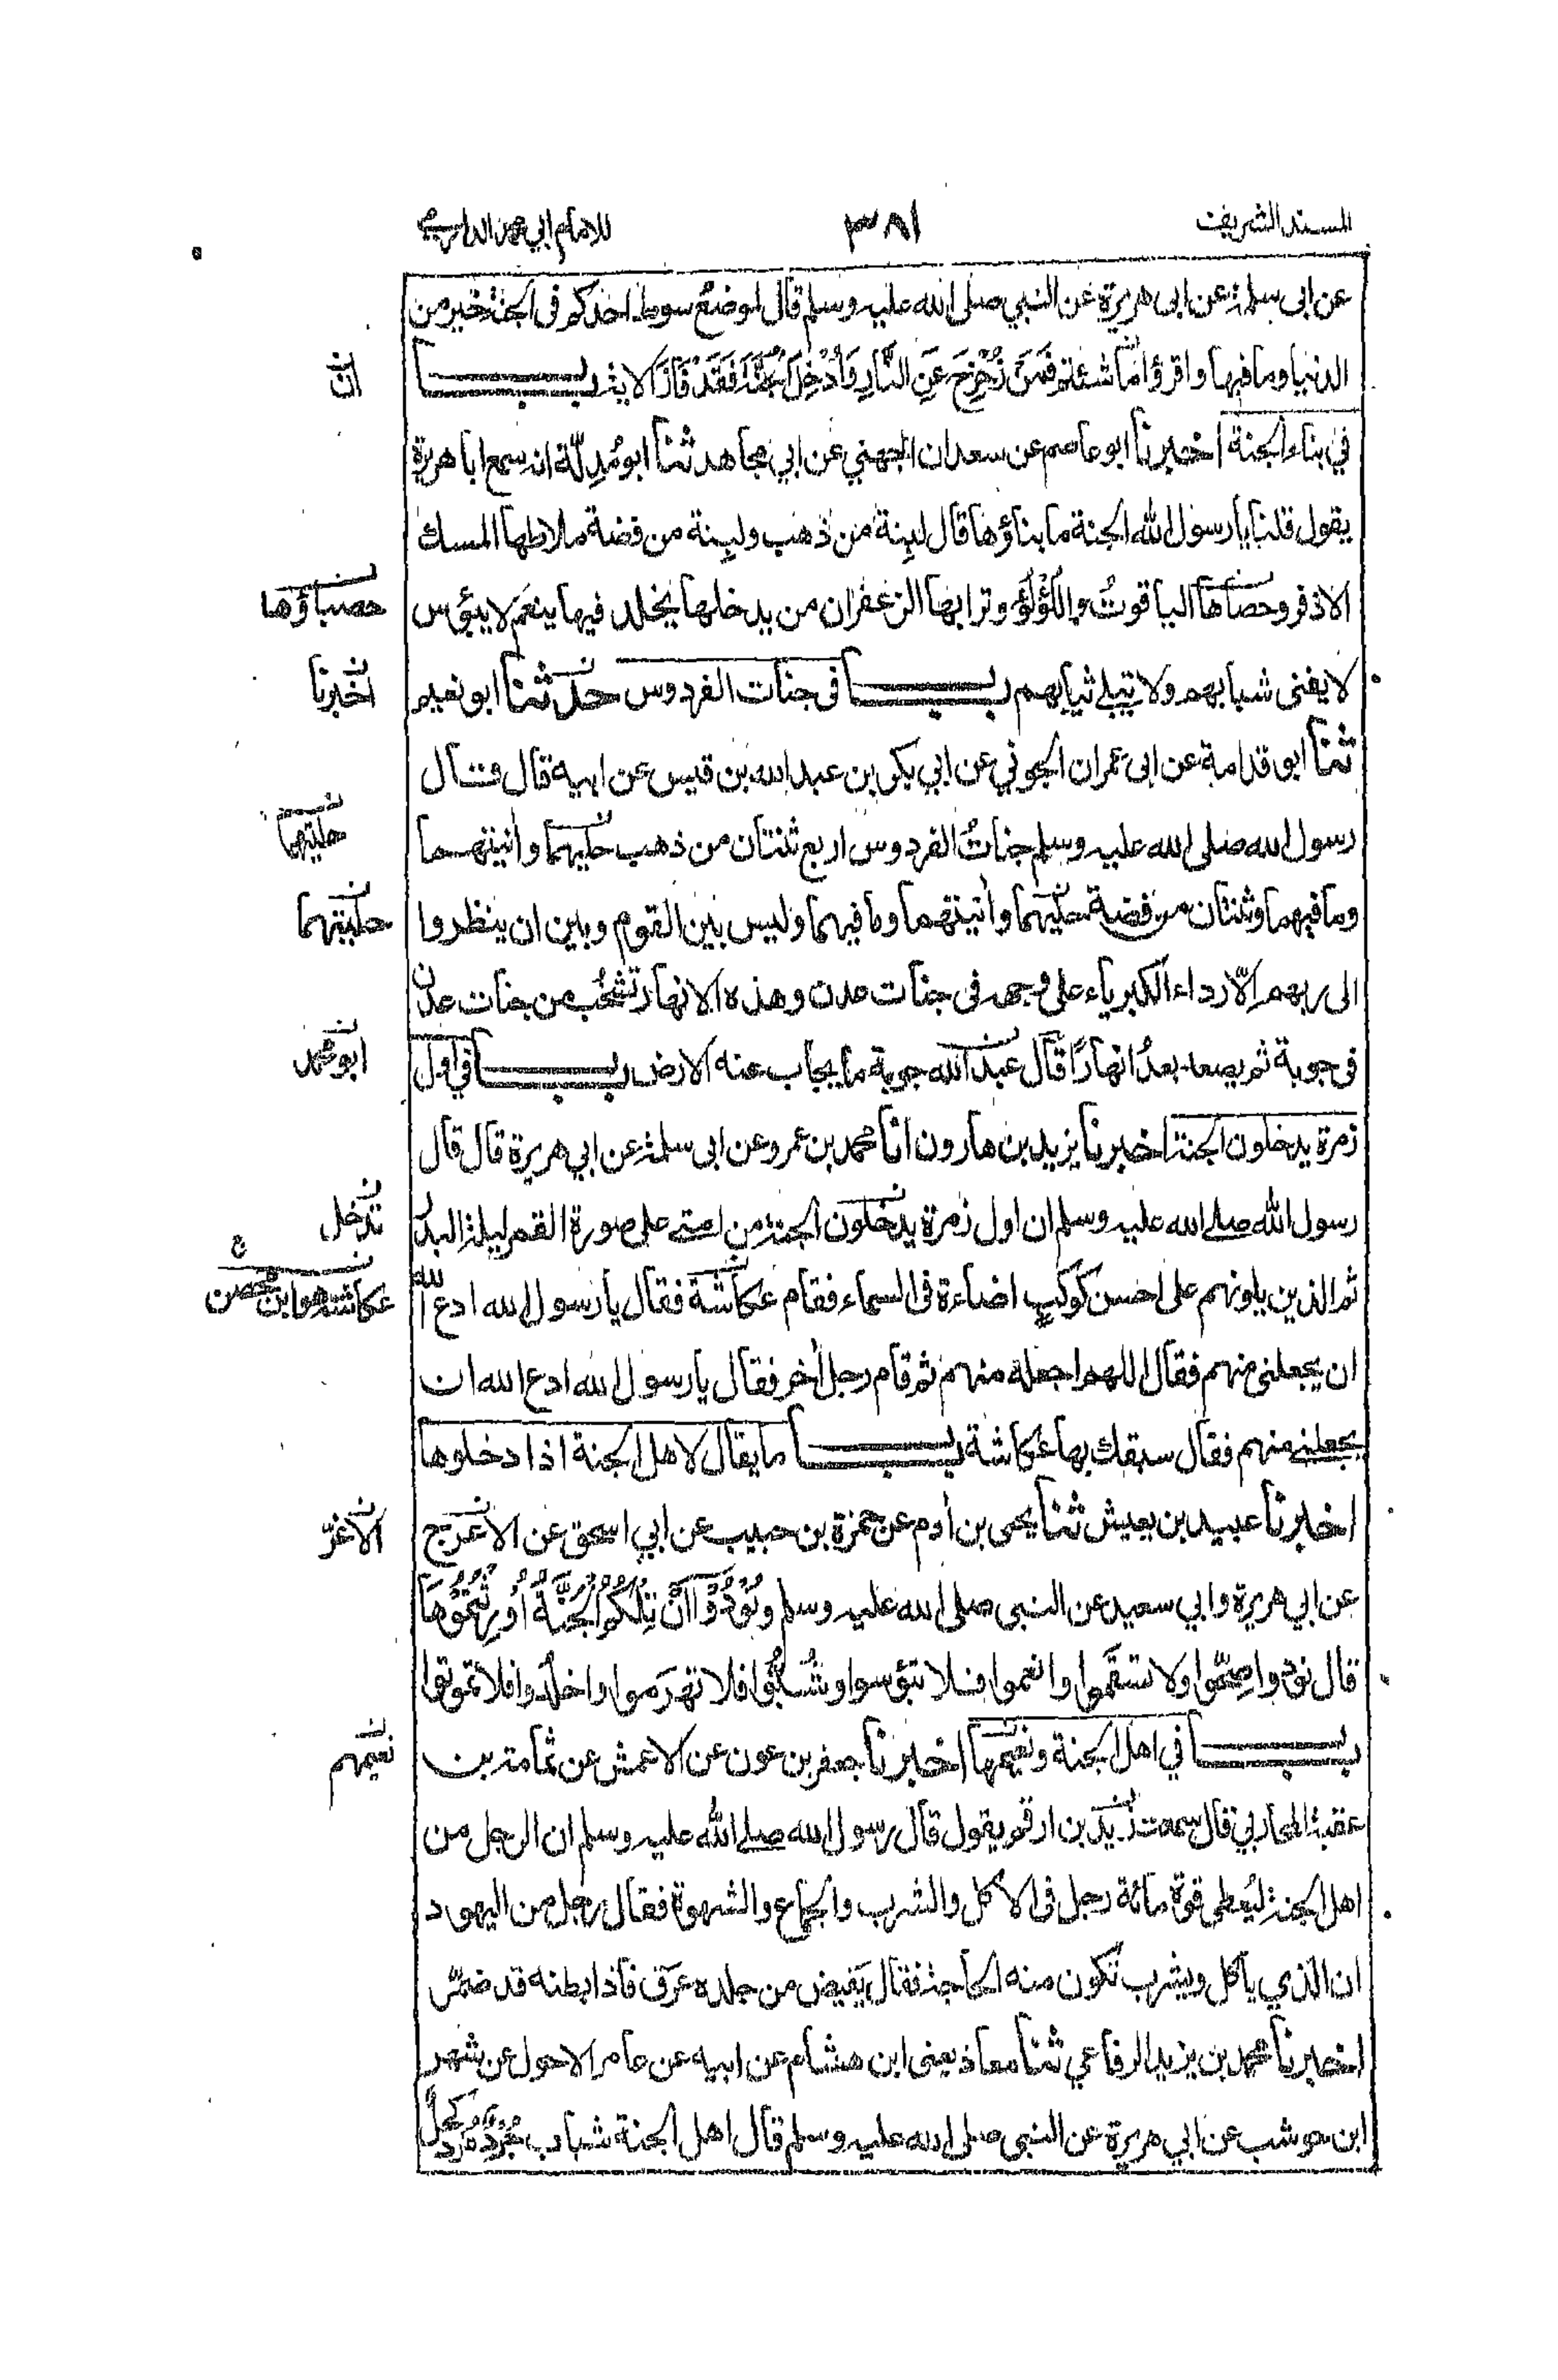 المسند الشريف
٣٨١
للامام ابي محمد الدارمي
عن ابى سلمة عن ابى هريرة عن النبي صلى الله عليه وسلم قال لوضع سوط احدكم فى الجنة خير من
الدنيا وما فيها واقرؤا ما شئتم فَمَنْ زُحْزِحَ عَنِ النَّارِ وَأُدْخِلَ الْجَنَّةَ فَقَدْ فَازَ الاية باب
ان
في بناء الجنة اخبرنا ابو عاصم عن سعدان الجهني عن ابي مجاهد ثنا ابو مُدِلّة انه سمع ابا هريرة
يقول قلنا يا رسول الله الجنة ما بناؤها قال لبِنة من ذهب ولبِنة من فضة ملاطها المسك
الاذفر وحصاها الياقوتُ واللُؤْلُؤ وترابها الزعفران من يدخلها يخلد فيها ينعم لا يبؤس
حصباؤها
لا يفنى شبابهم ولا تبلے ثيابهم باب فى جنات الفردوس حدثنا ابو نعيم
اخبرنا
ثنا ابو قدامة عن ابى عمران الجوني عن ابي بكر بن عبد الله بن قيس عن ابيه قال قال
رسول الله صلى الله عليه وسلم جناتُ الفردوس اربع ثنتان من ذهب حليهما وأنيتهما
حليتهما
وما فيهما وثنتان من فضة حليهما وأنيتهما وما فيهما وليس بين القوم وبين ان ينظروا
حليتهما
الى ربهم إلّا رداء الكبرياء على وجهه فى جنات عدن وهذه الانهار تشخُب من جنات عدن
فى جوبة ثم يصعد بعدُ انهارًا قال عبد الله جوبة ما يجاب عنه الارض باب في اول
ابو محمد
زمرة يدخلون الجنة اخبرنا يزيد بن هارون انا محمد بن عمرو عن ابى سلمة عن ابي هريرة قال قال
رسول الله صلے الله عليه وسلم ان اول زمرة يدخلون الجنة من امتے على صورة القمر ليلة البدر
تدخل
ثم الذين يلونهم على احسن كوكبٍ اضاءة فى السماء فقام عكاشة فقال يا رسول الله ادع الله
عكاشة هو ابن محصن
ان يجعلنى منهم فقال اللهم اجعله منهم ثم قام رجل أخر فقال يا رسول الله ادع الله ان
يجعلنے منهم فقال سبقك بها عكاشة باب ما يقال لاهل الجنة اذا دخلوها
اخبرنا عبيد بن يعيش ثنا يحيى بن أدم عن حمزة بن حبيب عن ابي اسحق عن الاعرج
الاغرّ
عن ابي هريرة وابي سعيد عن النبى صلى الله عليه وسلم وَنُوْدُوْا اَنْ تِلْكُمُ الْجَنَّةُ اُوْرِثْتُمُوْهَا
قال نودوا صِحّوا ولا تسقموا وانعموا فلا تبؤسوا وشُبُّوا فلا تهرموا واخلُدوا فلا تموتوا
باب في اهل الجنة ونعيمها اخبرنا جعفر بن عون عن الاعمش عن ثمامة بن
نعيمهم
عقبة المحاربي قال سمعت زيد بن ارقم يقول قال رسول الله صلے الله عليه وسلم ان الرجل من
اهل الجنة ليُعطى قوة مائة رجل فى الاكل والشرب والجماع والشهوة فقال رجل من اليهود
ان الذي ياكل ويشرب تكون منه الحاجة فقال يَفيض من جلده عرَق فاذا بطنه قد ضمُر
اخبرنا محمد بن يزيد الرفاعي ثنا معاذ يعنى ابن هشام عن ابيه عن عامر الاحول عن شهر
ابن حوشب عن ابي هريرة عن النبى صلى الله عليه وسلم قال اهل الجنة شباب جُرْد مُرْد كحلٌ